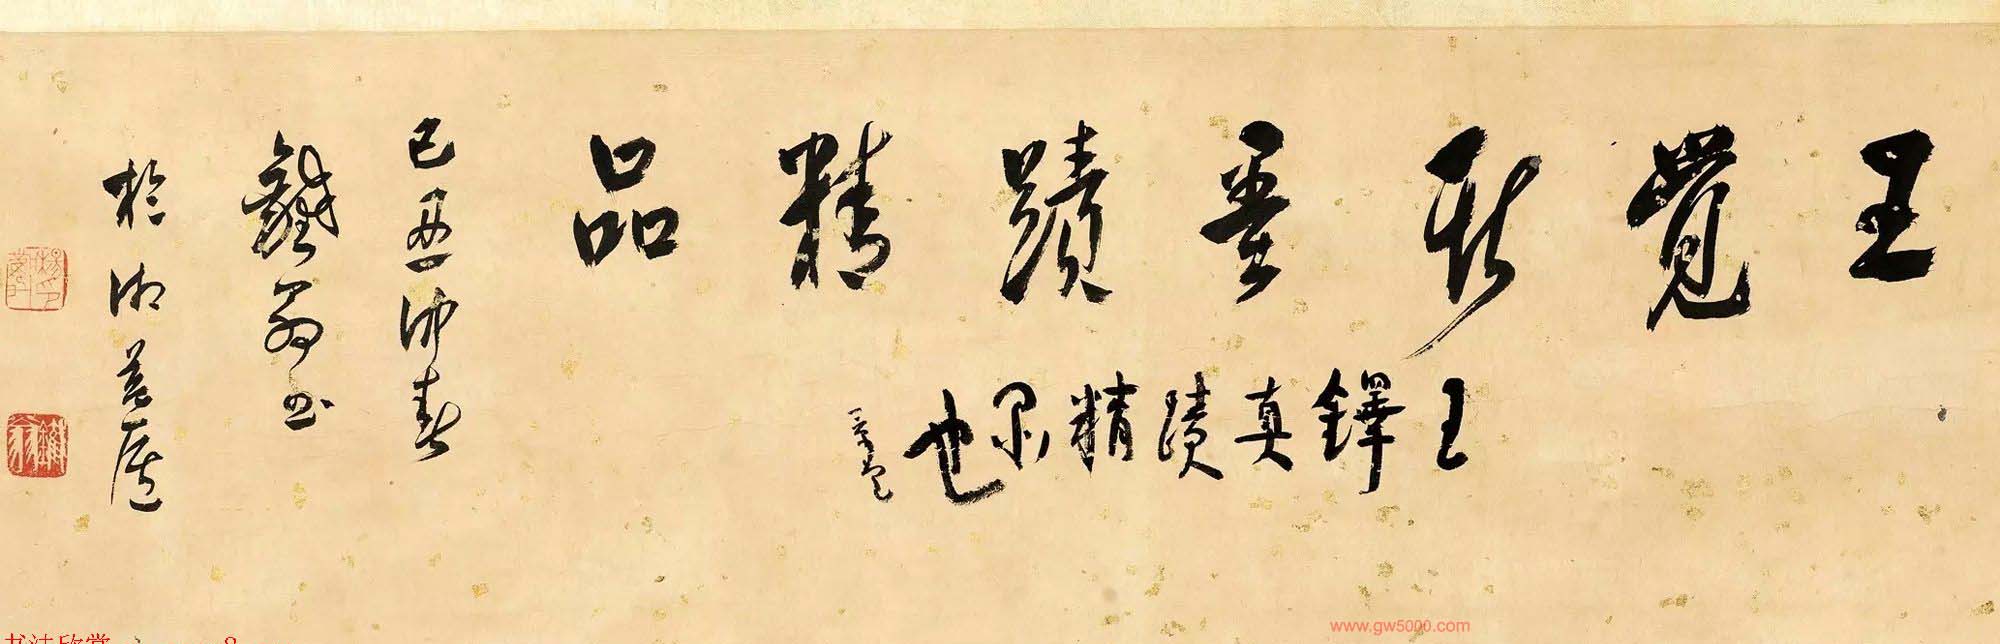 王覺斯墨蹟精品
王鐸真蹟精品也
己丑仲春
鐵翁書
於湖廬
鐵翁
www.gw5000.com
书法欣赏